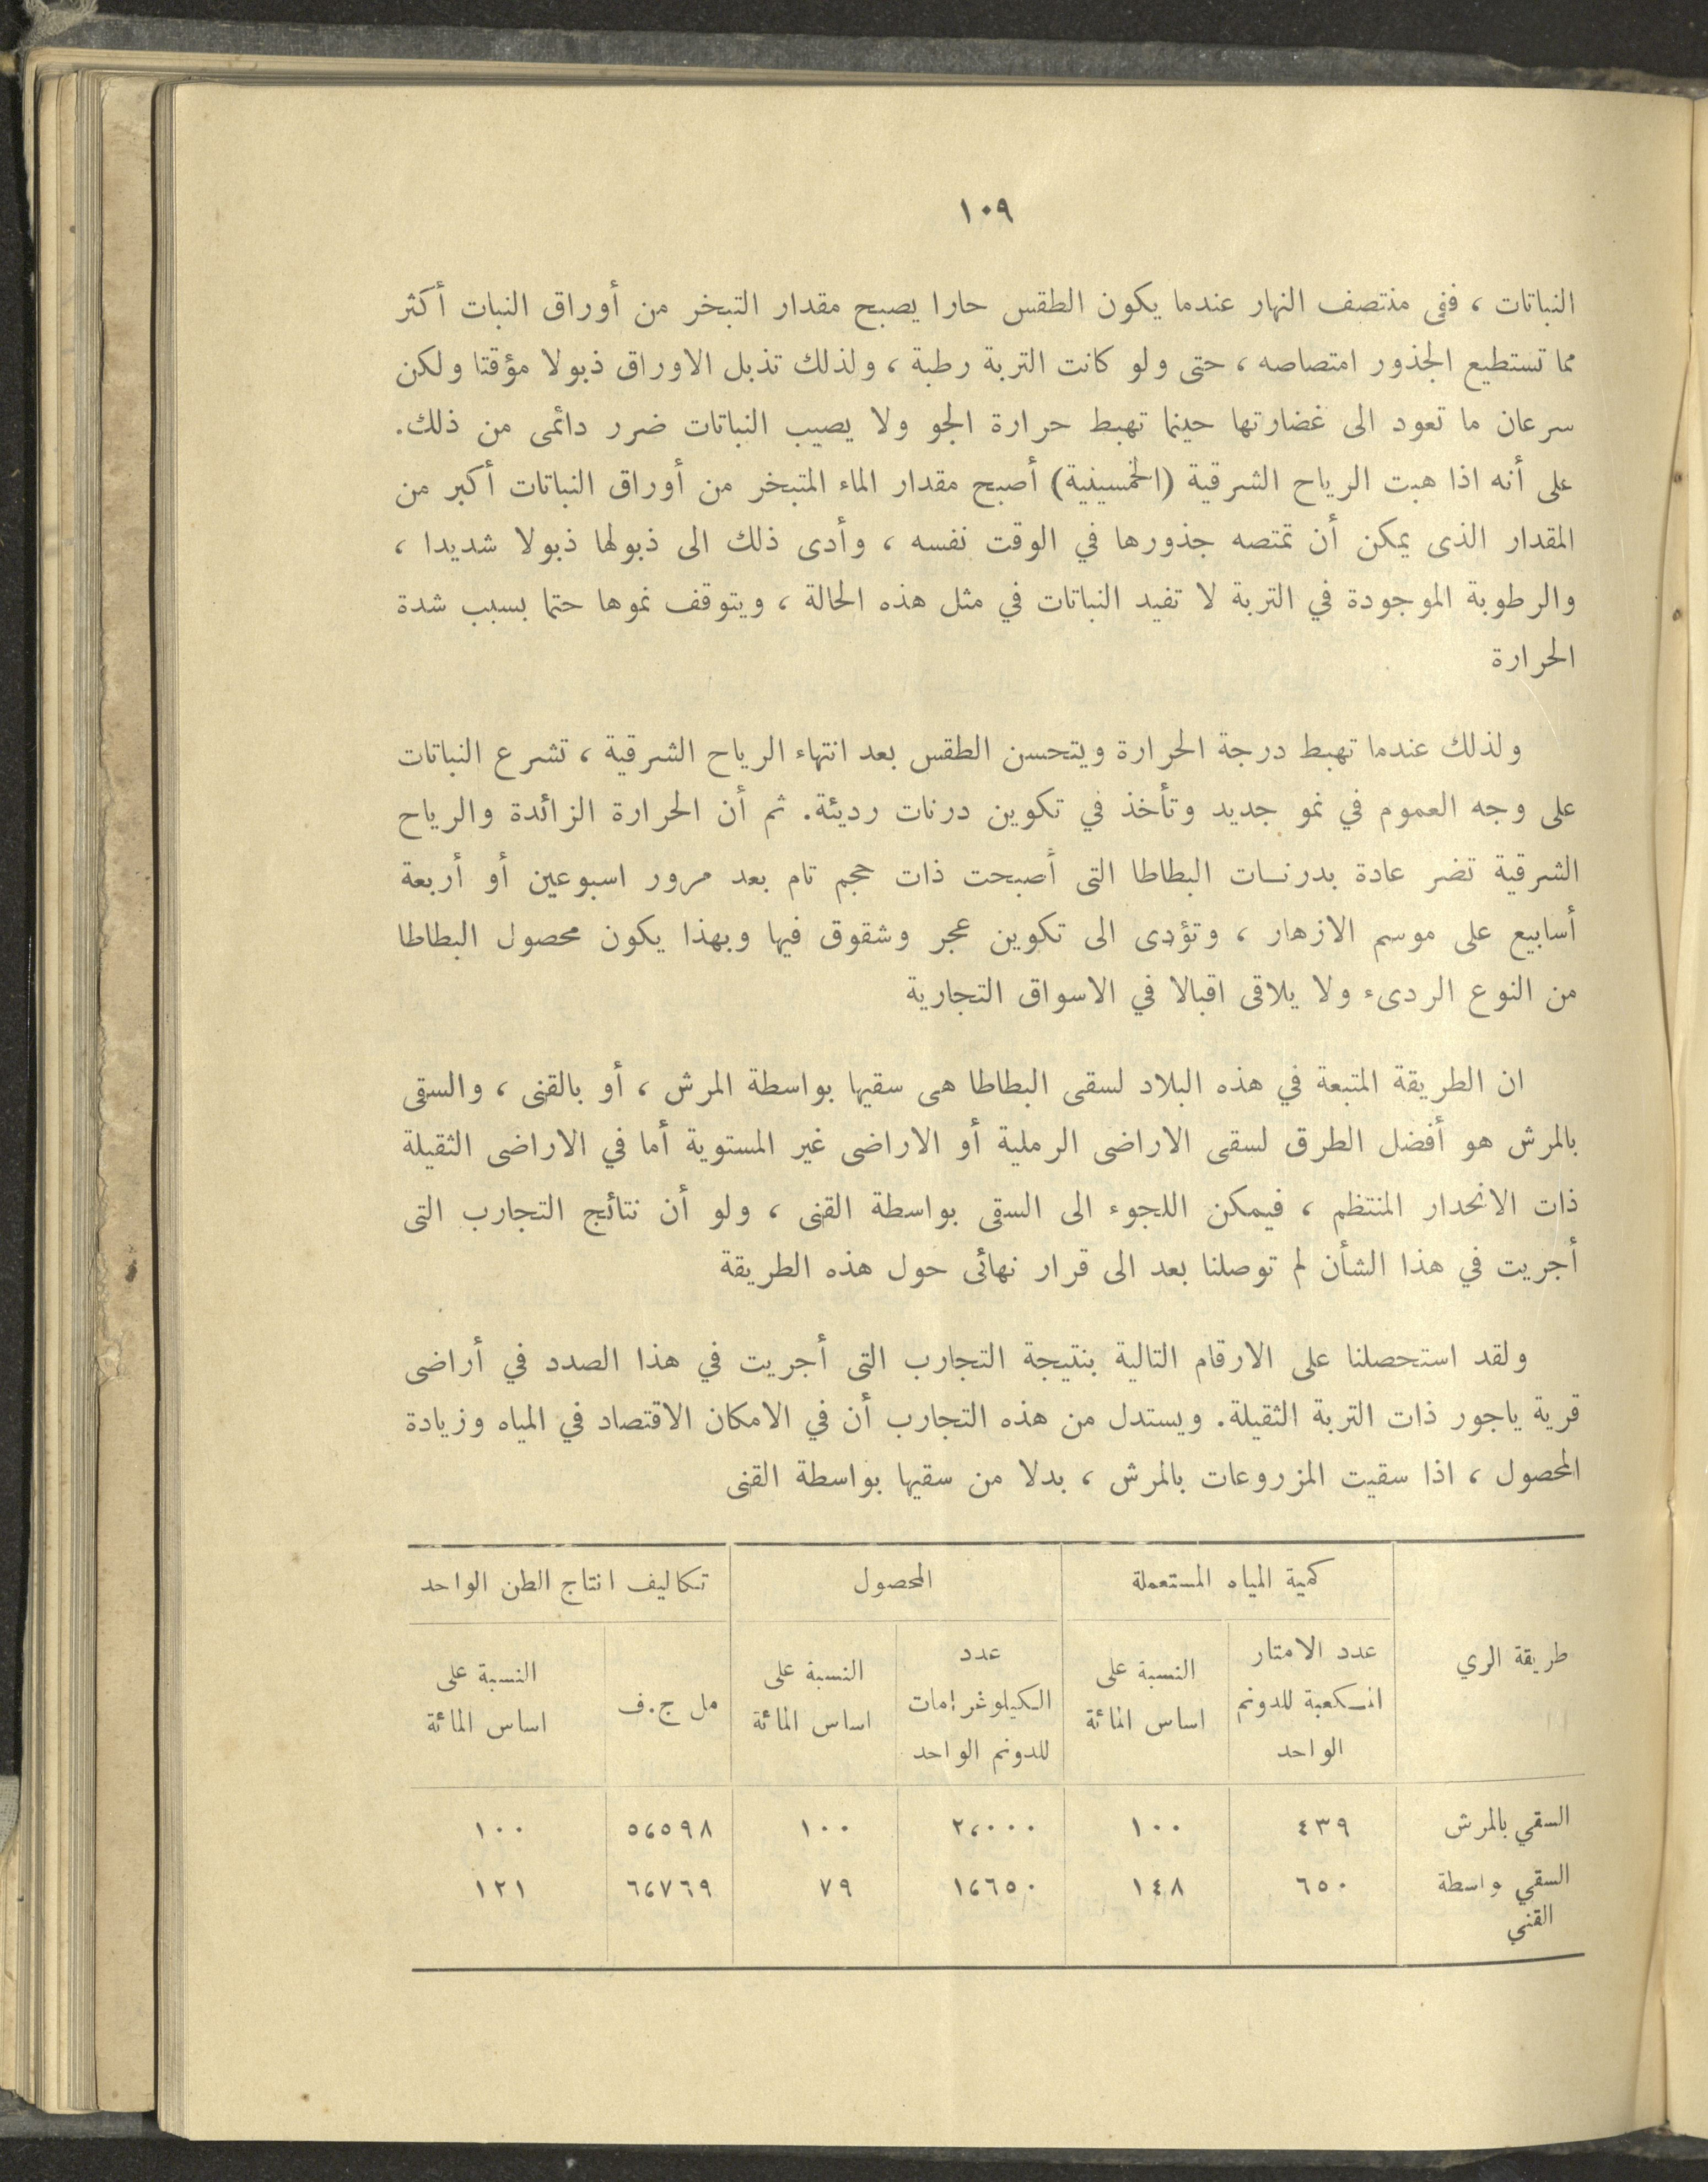 ١٠٩
النباتات ، ففى منتصف النهار عندما يكون الطقس حارا يصبح مقدار التبخر من أوراق النبات أكثر
مما تستطيع الجذور امتصاصه ، حتى ولو كانت التربة رطبة ، ولذلك تذبل الاوراق ذبولا مؤقتا ولكن
سرعان ما تعود الى غضارتها حينما تهبط حرارة الجو ولا يصيب النباتات ضرر دائمى من ذلك.
على أنه اذا هبت الرياح الشرقية (الخمسينية) أصبح مقدار الماء المتبخر من أوراق النباتات أكبر من
المقدار الذى يمكن أن تمتصه جذورها في الوقت نفسه ، وأدى ذلك الى ذبولها ذبولا شديدا ،
والرطوبة الموجودة في التربة لا تفيد النباتات في مثل هذه الحالة ، ويتوقف نموها حتما بسبب شدة
الحرارة
ولذلك عندما تهبط درجة الحرارة ويتحسن الطقس بعد انتهاء الرياح الشرقية ، تشرع النباتات
على وجه العموم في نمو جديد وتأخذ في تكوين درنات رديئة. ثم أن الحرارة الزائدة والرياح
الشرقية تضر عادة بدرنات البطاطا التى أصبحت ذات حجم تام بعد مرور اسبوعين أو أربعة
أسابيع على موسم الازهار ، وتؤدى الى تكوين عجر وشقوق فيها وبهذا يكون محصول البطاطا
من النوع الردىء ولا يلاقى اقبالا في الاسواق التجارية
ان الطريقة المتبعة في هذه البلاد لسقى البطاطا هى سقيها بواسطة المرش ، أو بالقنى ، والسقى
بالمرش هو أفضل الطرق لسقى الاراضى الرملية أو الاراضى غير المستوية أما في الاراضى الثقيلة
ذات الانحدار المنتظم ، فيمكن اللجوء الى السقى بواسطة القنى ، ولو أن نتائج التجارب التى
أجريت في هذا الشأن لم توصلنا بعد الى قرار نهائى حول هذه الطريقة
ولقد استحصلنا على الارقام التالية بنتيجة التجارب التى أجريت في هذا الصدد في أراضى
قرية ياجور ذات التربة الثقيلة. ويستدل من هذه التجارب أن في الامكان الاقتصاد في المياه وزيادة
المحصول ، اذا سقيت المزروعات بالمرش ، بدلا من سقيها بواسطة القنى
كمية المياه المستعملة المحصول تكاليف انتاج الطن الواحد
طريقة الري عدد الامتار المكعبة للدونم الواحد النسبة على اساس المائة عدد الكيلوغرامات للدونم الواحد النسبة على اساس المائة مل ج.ف النسبة على اساس المائة
السقي بالمرش ٤٣٩ ١٠٠ ٢،٠٠٠ ١٠٠ ٥،٥٩٨ ١٠٠
السقي واسطة ٦٥٠ ١٤٨ ١،٦٥٠ ٧٩ ٦،٧٦٩ ١٢١
القني